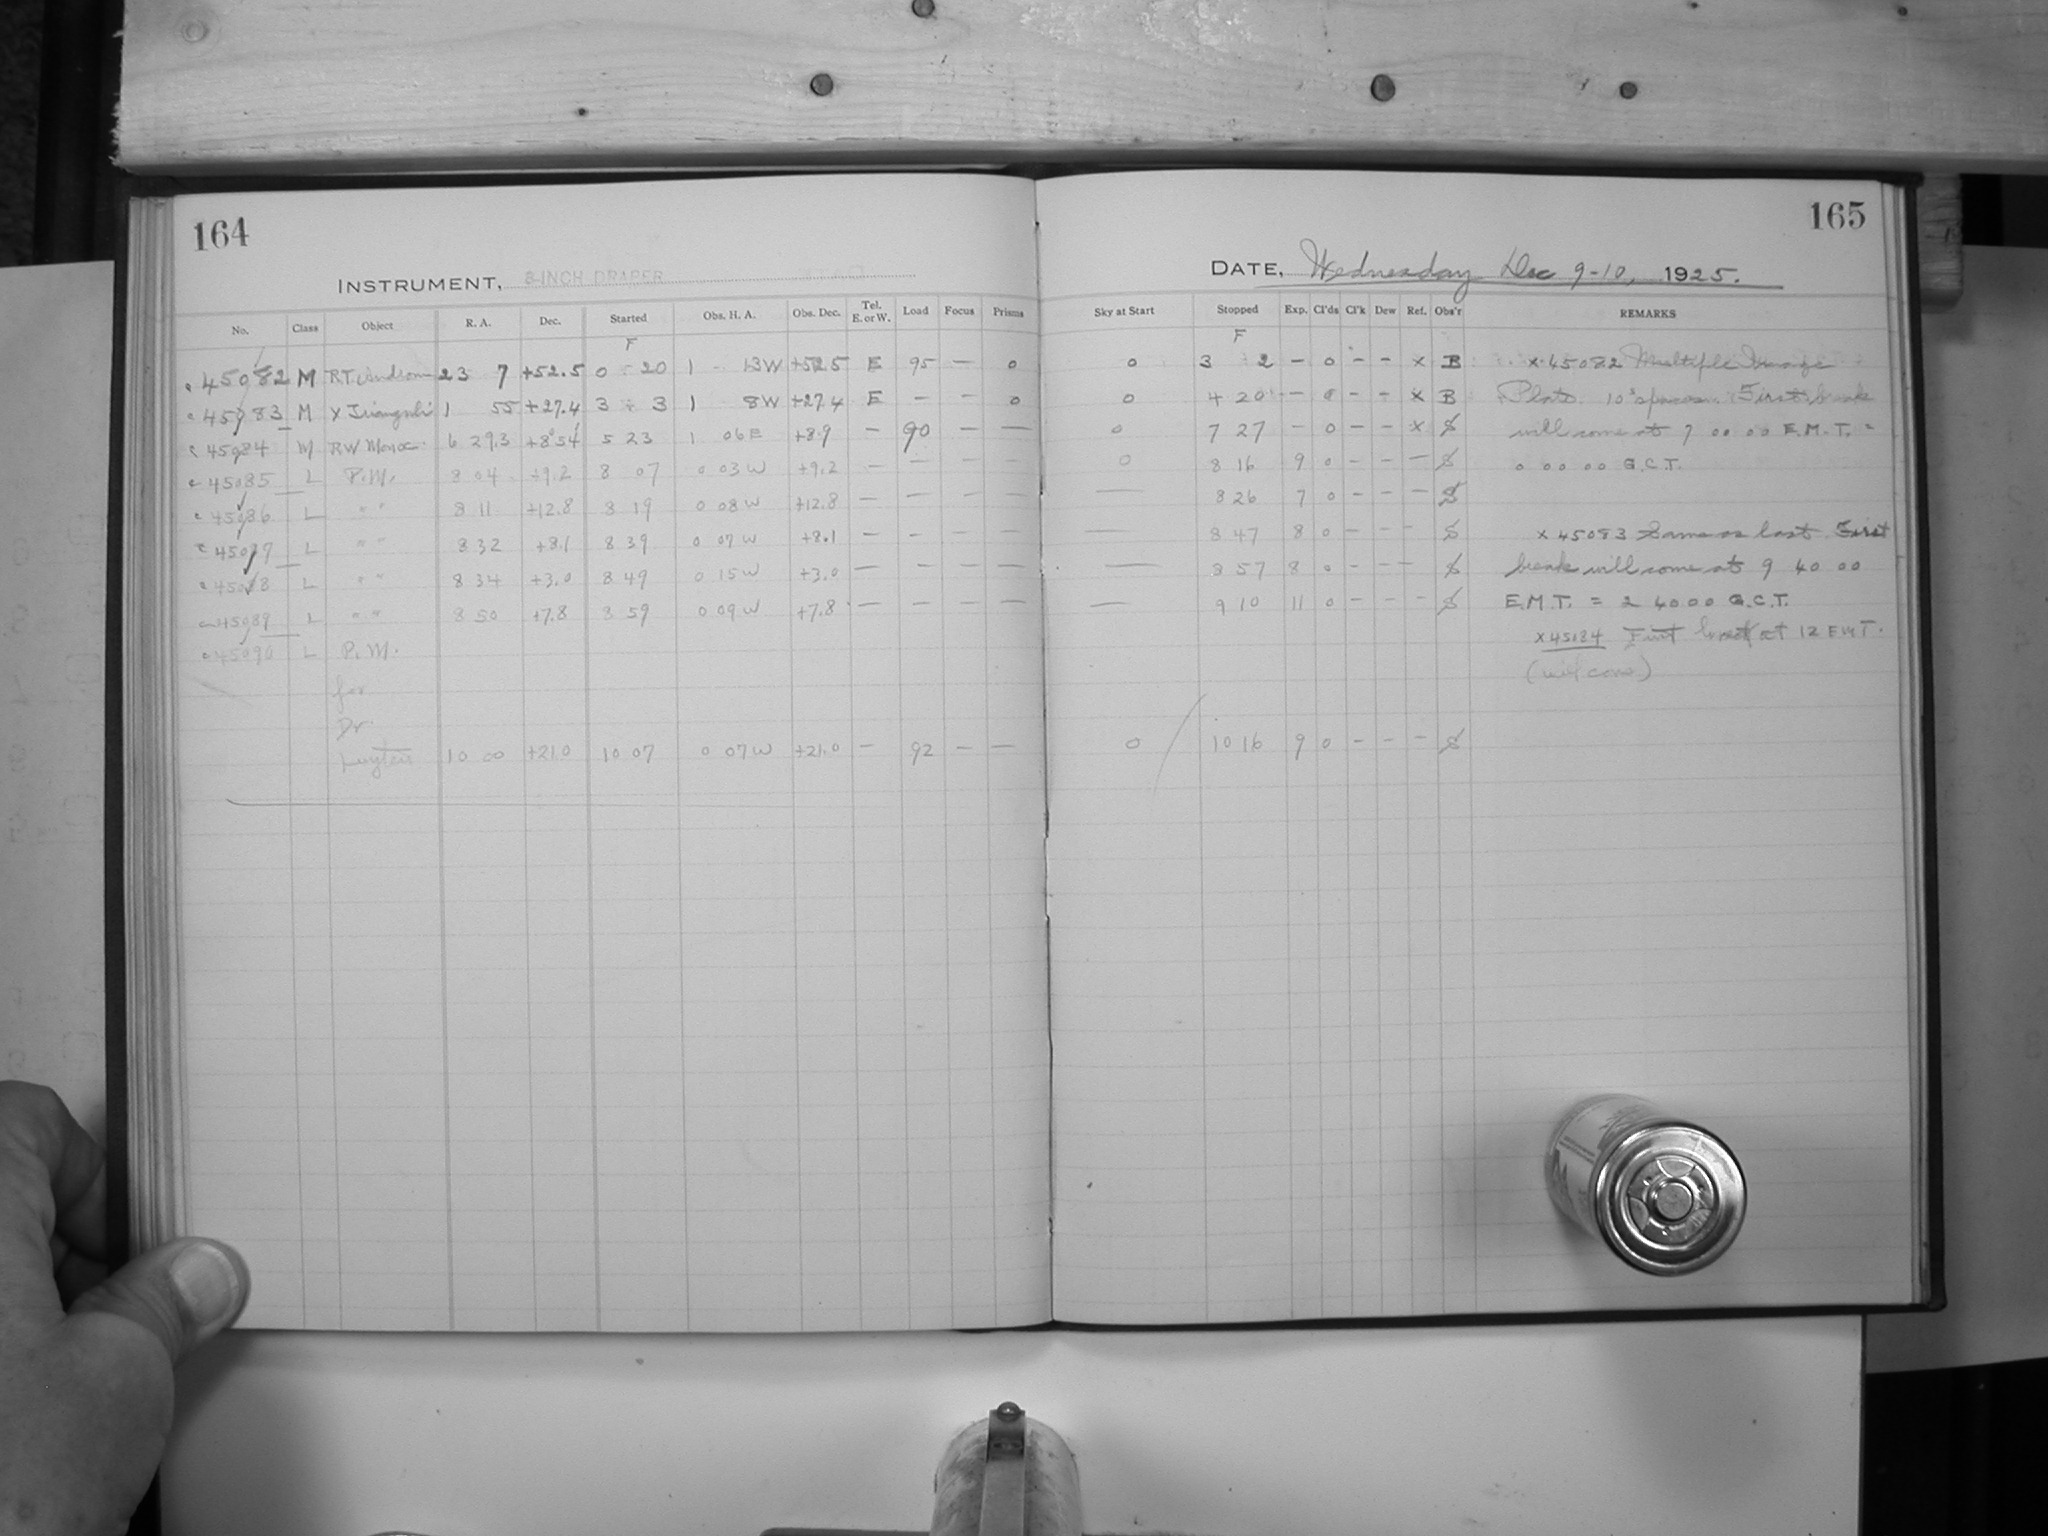 164
INSTRUMENT, 8-INCH DRAPER
No. Class Object R. A. Dec. Started Obs. H. A. Obs. Dec. Tel. E. or W. Load Focus Prisms
F
c 45082 M RT Androm 23 7 +52.5 0 20 1 13W +52.5 E 95 — 0
c 45083 M X Trianguli 1 55 +27.4 3 3 1 8W +27.4 E - — 0
c 45084 M RW Monoc 6 29.3 +8°54' 5 23 1 06E +8.9 — 90 — —
c 45085 L P.M. 8 04 +9.2 8 07 0 03W +9.2 — — — —
c 45086 L " " 8 11 +12.8 8 19 0 08W +12.8 — — — —
c 45087 L " " 8 32 +8.1 8 39 0 07W +8.1 — — — —
c 45088 L " " 8 34 +3.0 8 49 0 15W +3.0 — — — —
c 45089 L " " 8 50 +7.8 8 59 0 09W +7.8 — — — —
c 45090 L P.M.
for
Dr.
Luyten 10 00 +21.0 10 07 0 07W +21.0 — 92 — —
165
DATE, Wednesday Dec 9-10, 1925.
Sky at Start Stopped Exp. Cl'ds Cl'k Dew Ref. Obs'r REMARKS
F
0 3 2 — 0 - - x B x 45082 Multiple Image
0 4 20 — 0 - - x B Plate. 10s spaces. First break
0 7 27 — 0 — — x S will come at 7 00 00 E.M.T. =
0 8 16 9 0 - - — S 0 00 00 G.C.T.
— 8 26 7 0 - - — S
— 8 47 8 0 - - - S x 45083 Same as last First
— 8 57 8 0 - - - S break will come at 9 40 00
— 9 10 11 0 - - - S E.M.T. = 2 40 00 G.C.T.
x 45084 First at 12 E.M.T.
(will come)
0 10 16 9 0 — - - S